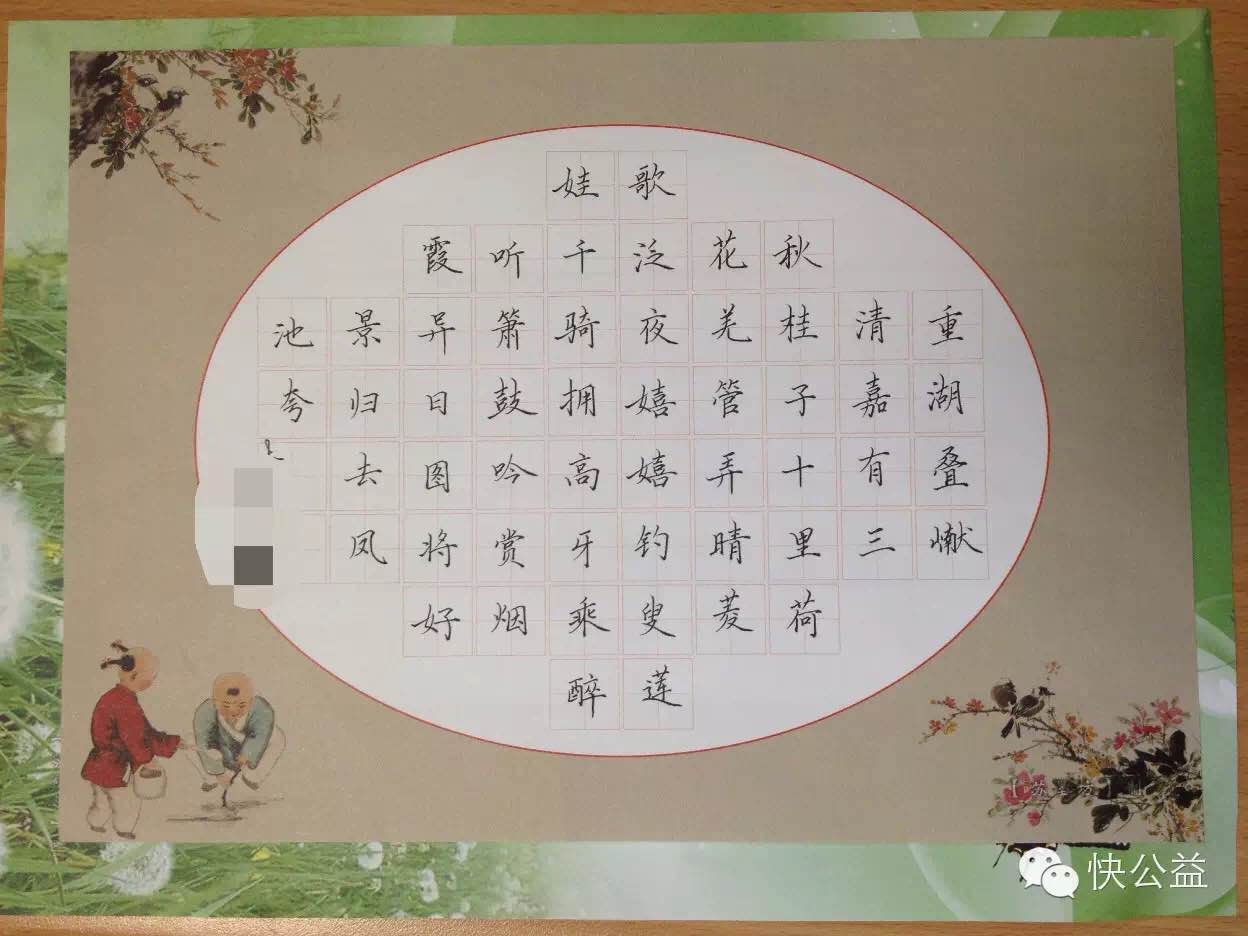 重湖叠𪩘
清嘉有三
秋桂子十里荷
花羌管弄晴菱
歌泛夜嬉嬉钓叟莲
娃千骑拥高牙乘醉
听箫鼓吟赏烟
霞异日图将好
景归去凤
池夸
快公益